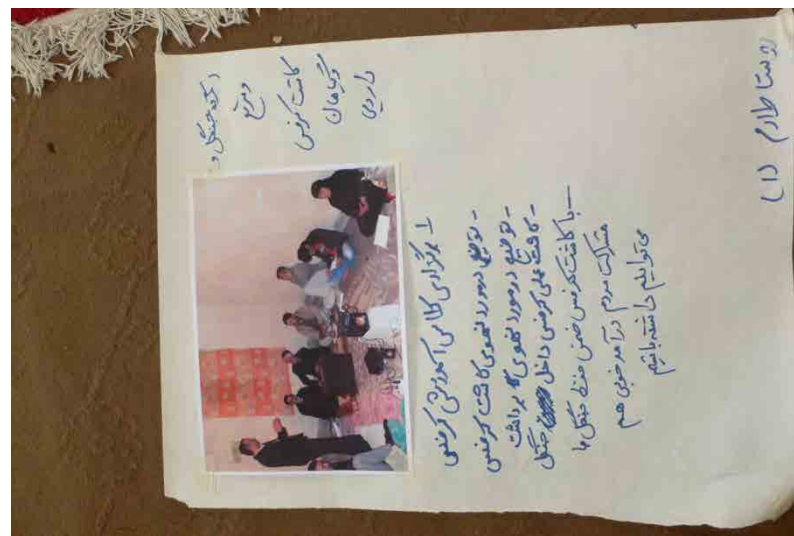 روستا طارم (۱)
احیاء جنگل و
مرتع
کاشت کرفس
گیاهان
دارویی
۱- برگزاری کلاس آموزشی کرفس
- توضیح در مورد نحوی کاشت کرفس
- توضیح در مورد نحوی برداشت
- کاشت عملی کرفس داخل جنگل
- با کاشت کرفس ضمن حفظ جنگل با
مشارکت مردم درآمد خوبی هم
می توانیم داشته باشیم